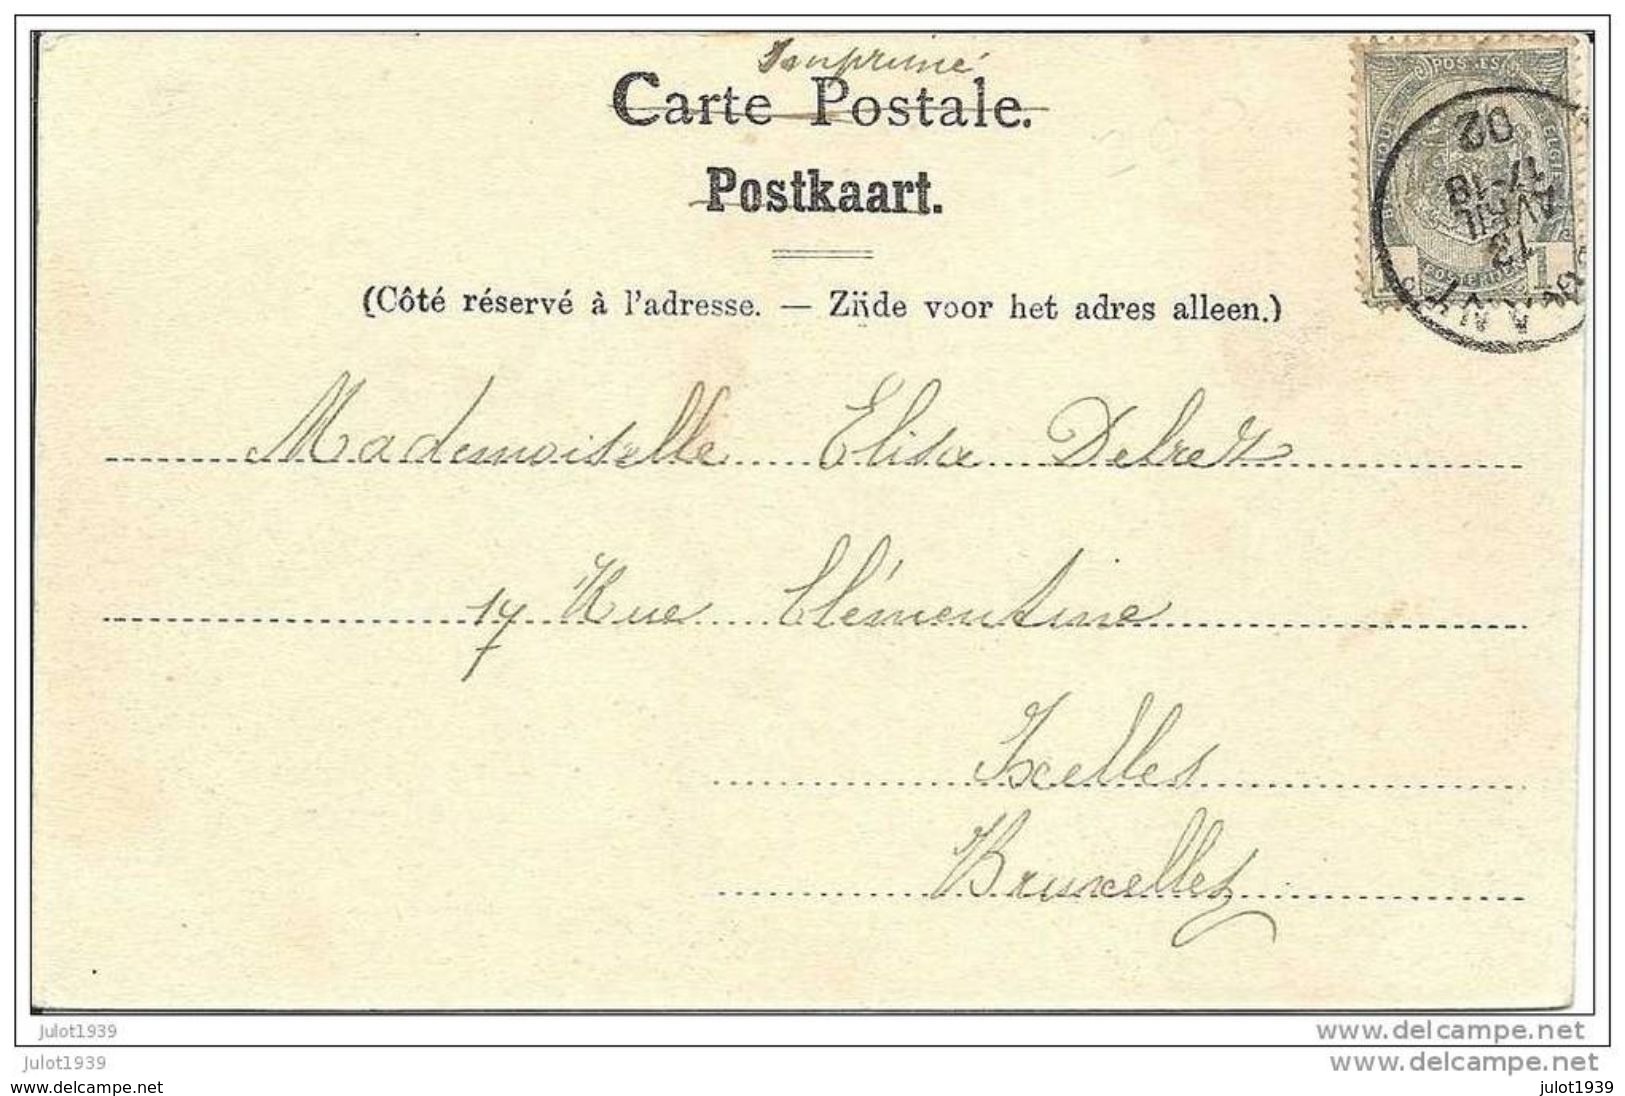 Imprimé
Carte Postale.
Postkaart.
(Côté réservé à l'adresse. — Zijde voor het adres alleen.)
POSTES
BELGIQUE
POSTERIJEN
1
12
AVRIL
17-18
02
Mademoiselle Elisa Delrez
17 Rue Clémentine
Ixelles
Bruxelles
julot1939
www.delcampe.net
julot1939
www.delcampe.net
www.delcampe.net
julot1939